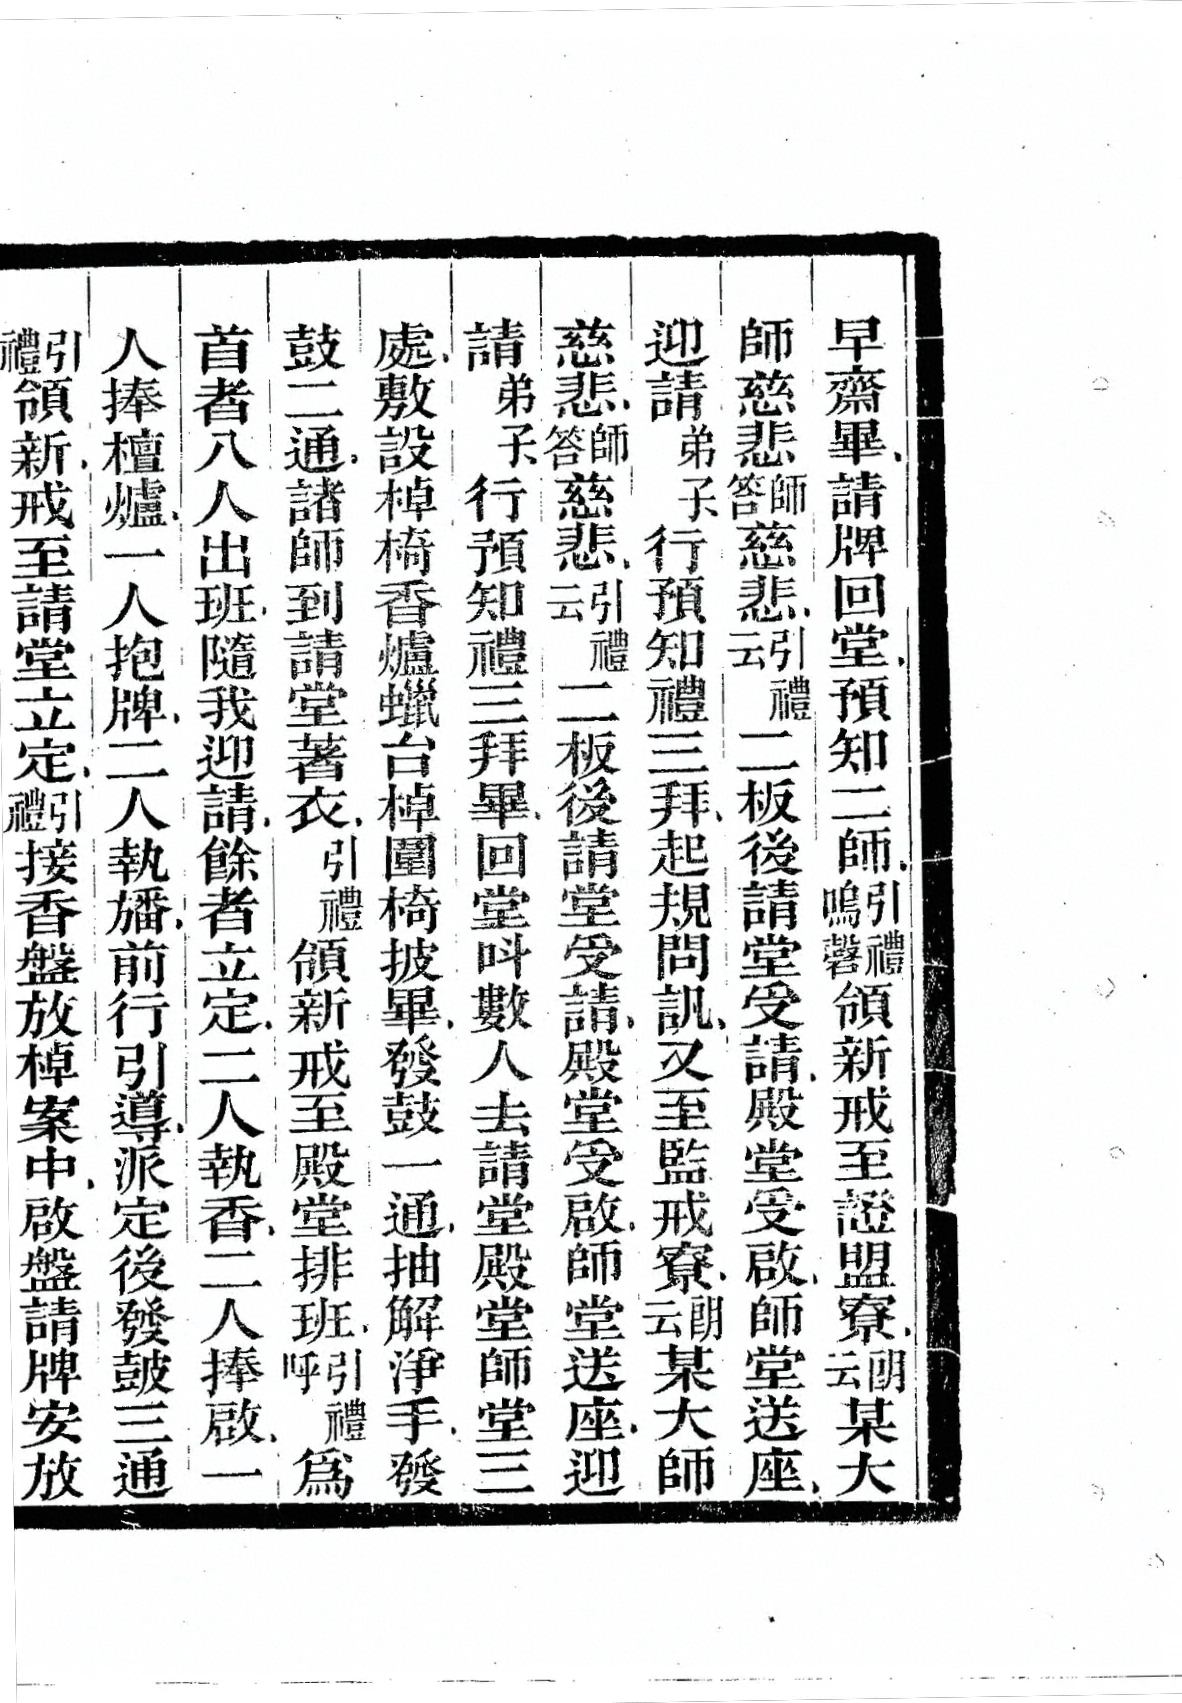 早齋畢、請牌回堂、預知二師、引禮鳴磬領新戒至證盟寮、朙云某大
師慈悲師答慈悲、引禮云二板後請堂受請、殿堂受啟、師堂送座、
迎請弟子行預知禮三拜、起規問訊、又至監戒寮、朙云某大師
慈悲、師答慈悲、引禮云二板後請堂受請、殿堂受啟、師堂送座、迎
請弟子行預知禮三拜畢、回堂呌數人去請堂殿堂師堂三
處、敷設棹椅香爐蠟台棹圍椅披畢、發鼓一通、抽解淨手、發
鼓二通、諸師到請堂著衣、引禮領新戒至殿堂排班、引禮呼為
首者八人出班、隨我迎請、餘者立定、二人執香、二人捧啟、一
人捧檀爐、一人抱牌、二人執旛、前行引導、派定後發鼓三通
引禮領新、戒至請堂立定、引禮接香盤放棹案中、啟盤請牌安放